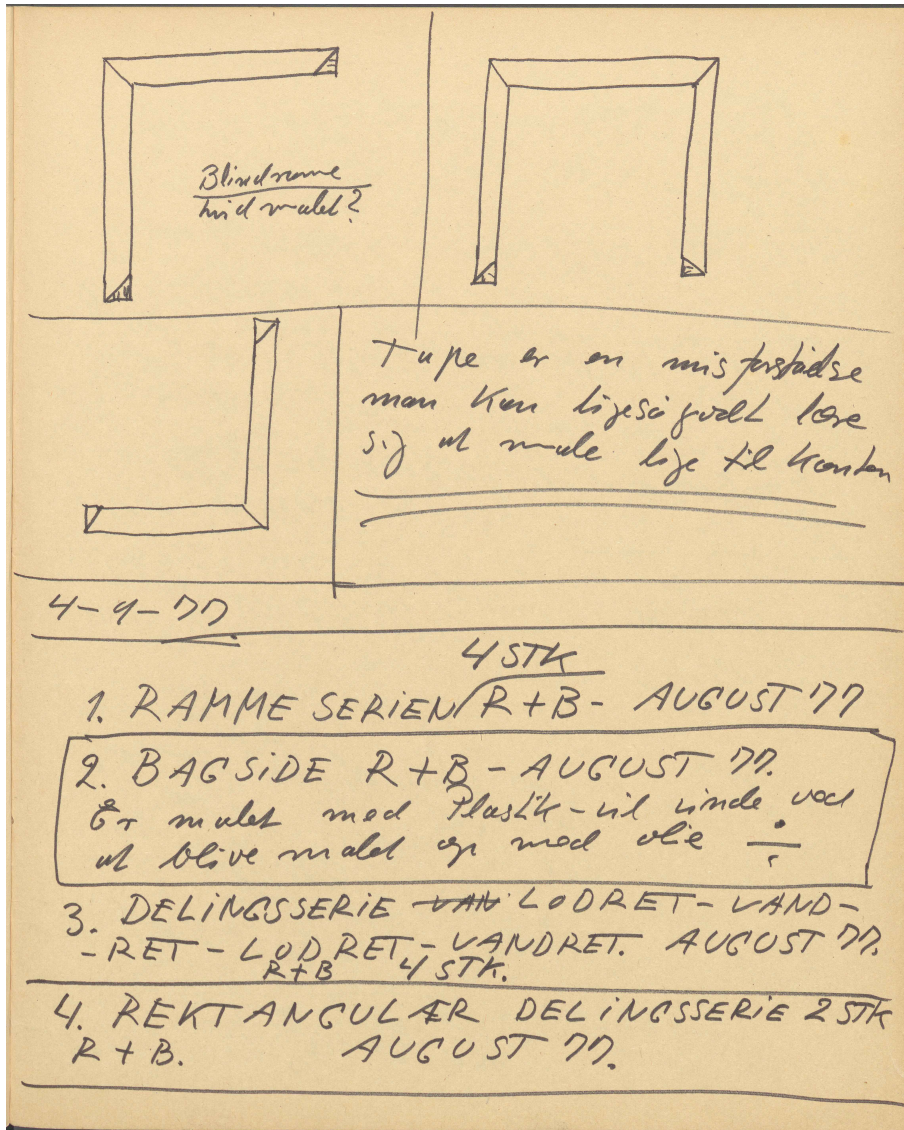 Blindrame
hvid malet?
Tape er en misforståelse
man kan ligeså godt lære
sig at male lige til kanten
4-9-77
4 STK
1. RAMME SERIEN R+B- AUGUST 77
2. BAGSIDE R+B-AUGUST 77.
Er malet med Plastik-vil vinde ved
at blive malet op med olie ÷
3. DELINGSSERIE VAN LODRET-VAND-
-RET-LODRET-VANDRET. AUGUST 77.
R+B 4 STK.
4. REKTANGULÆR DELINGSSERIE 2 STK
R+B. AUGUST 77.